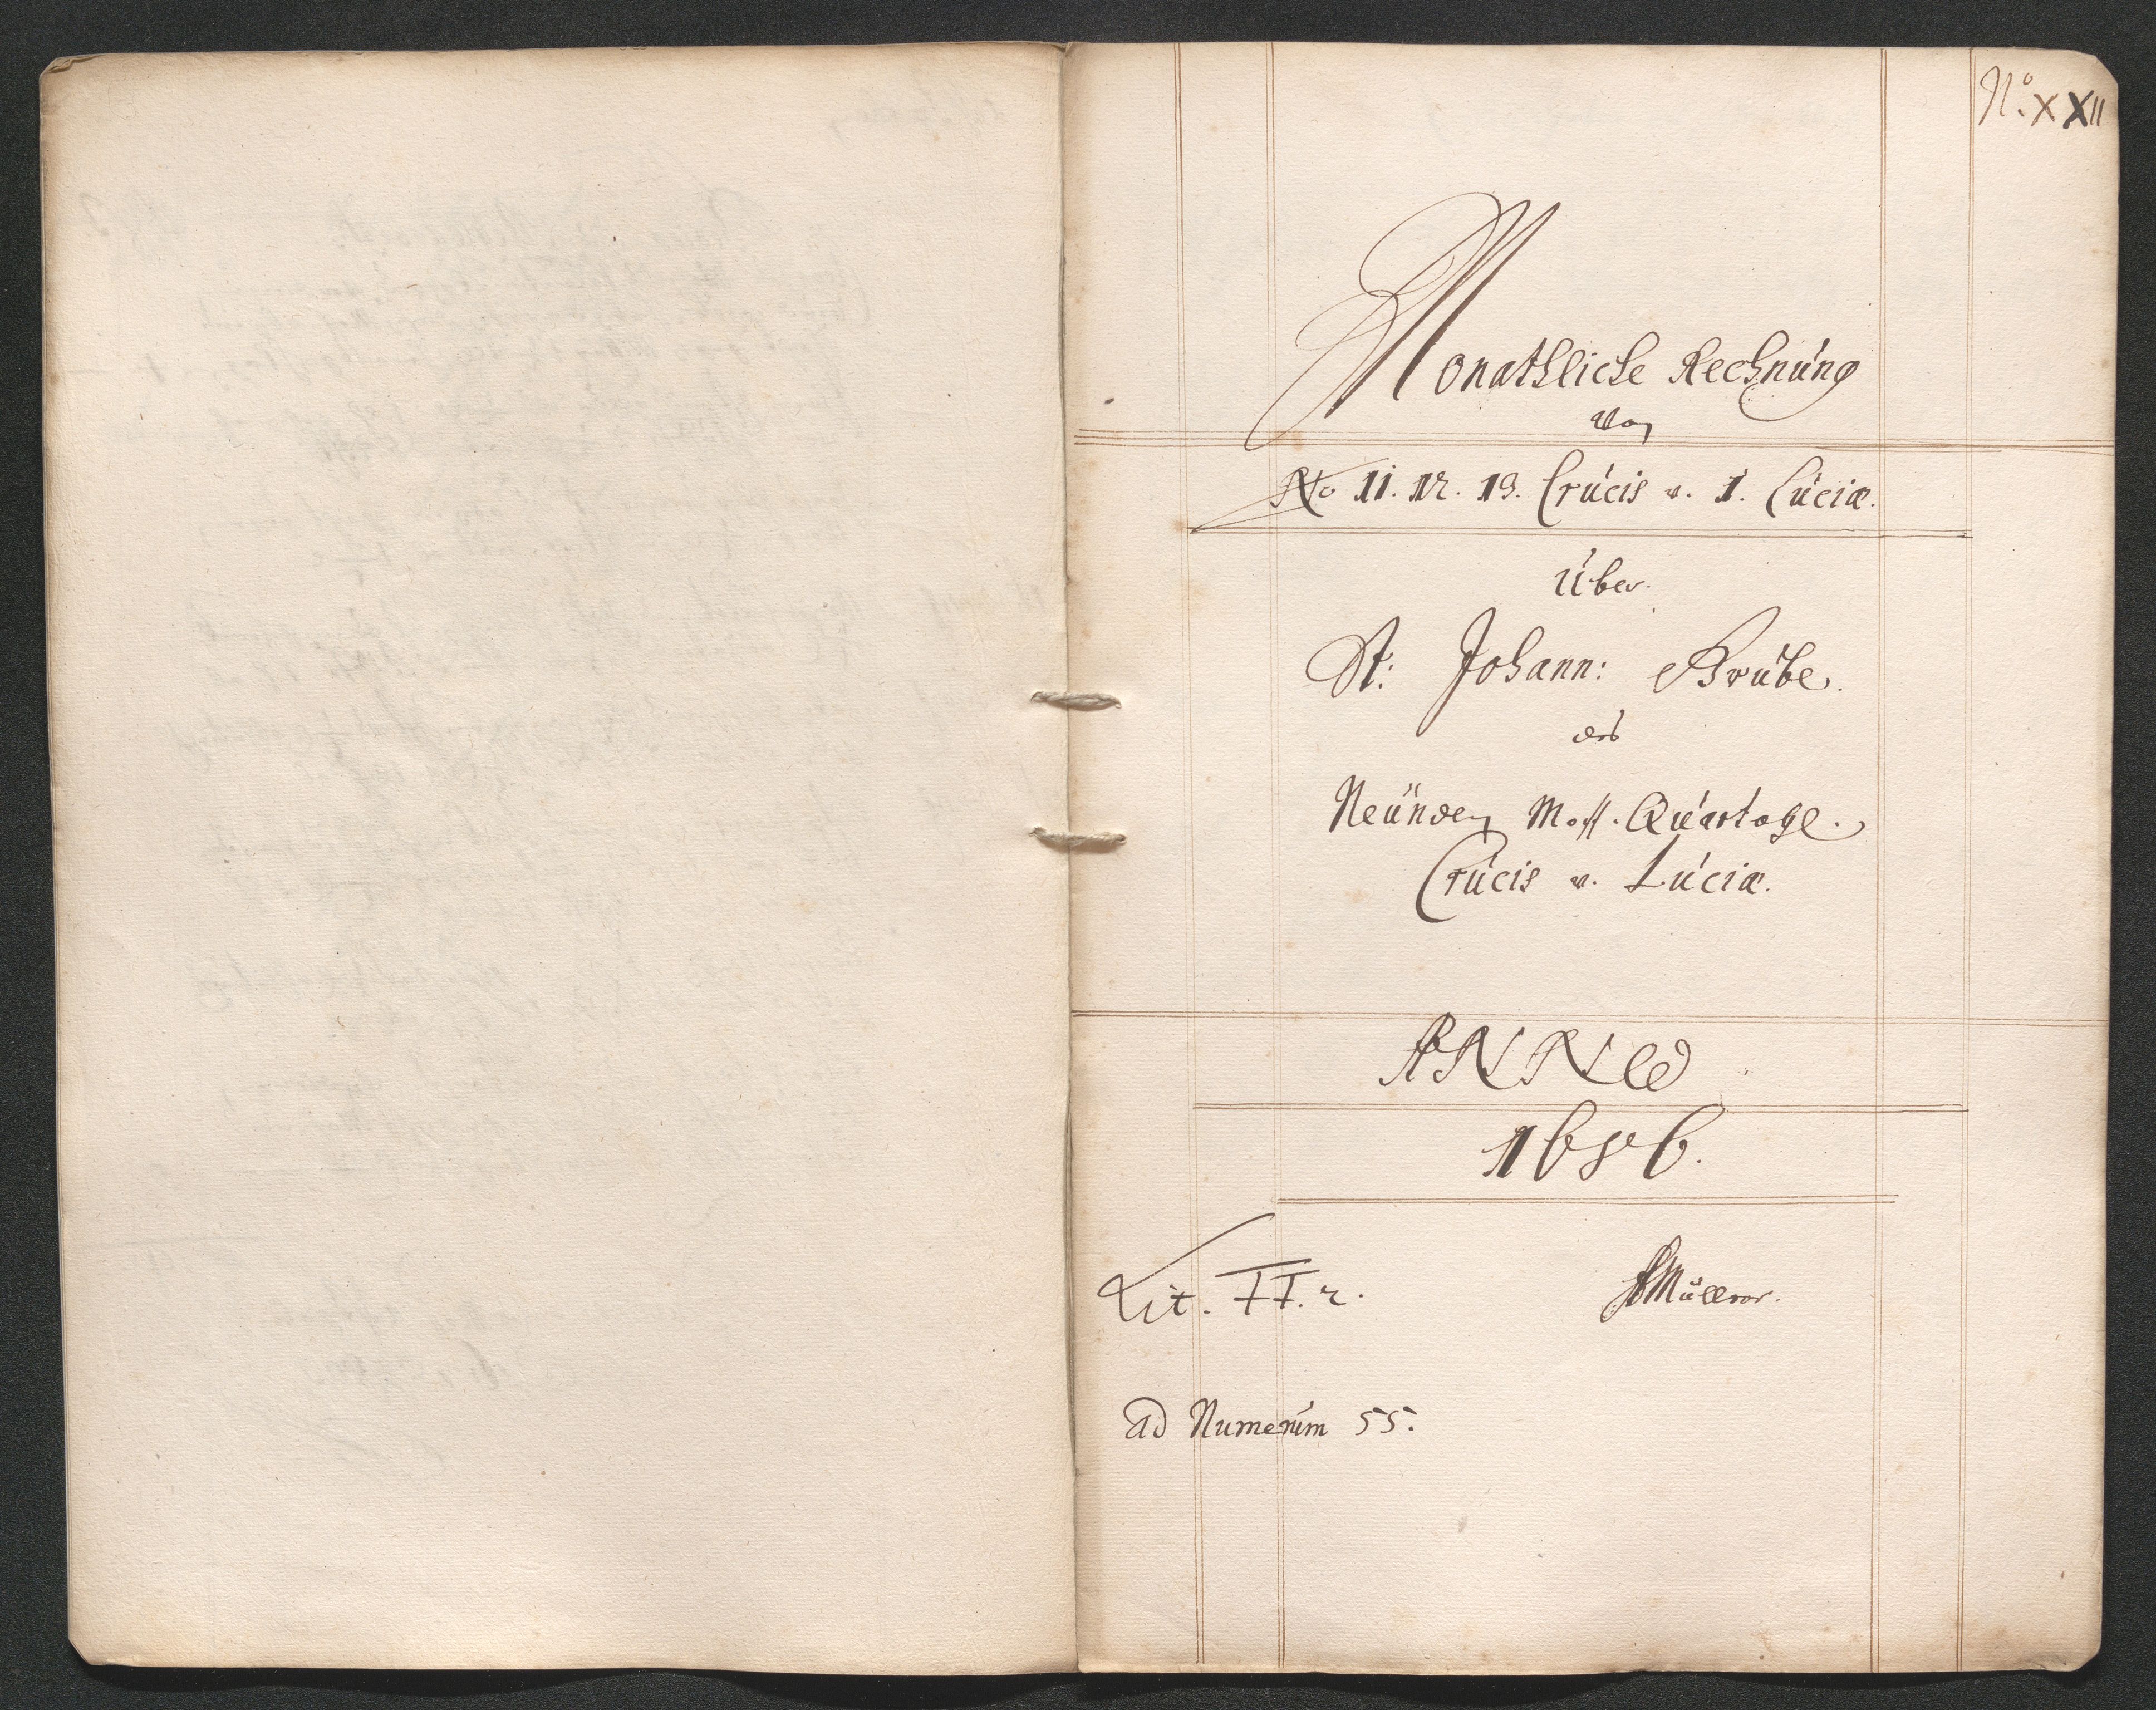 No. XXII
Monathliche Rechnung
von
No 11. 12. 13. Crucis v. 1. Luciæ.
Über
St: Johann: Grube.
des
Neünden Quartahl.
Crucis v. Luciæ.
ANNO
1686.
Lit. FF. 2.
Müller.
ad Numerum 55.